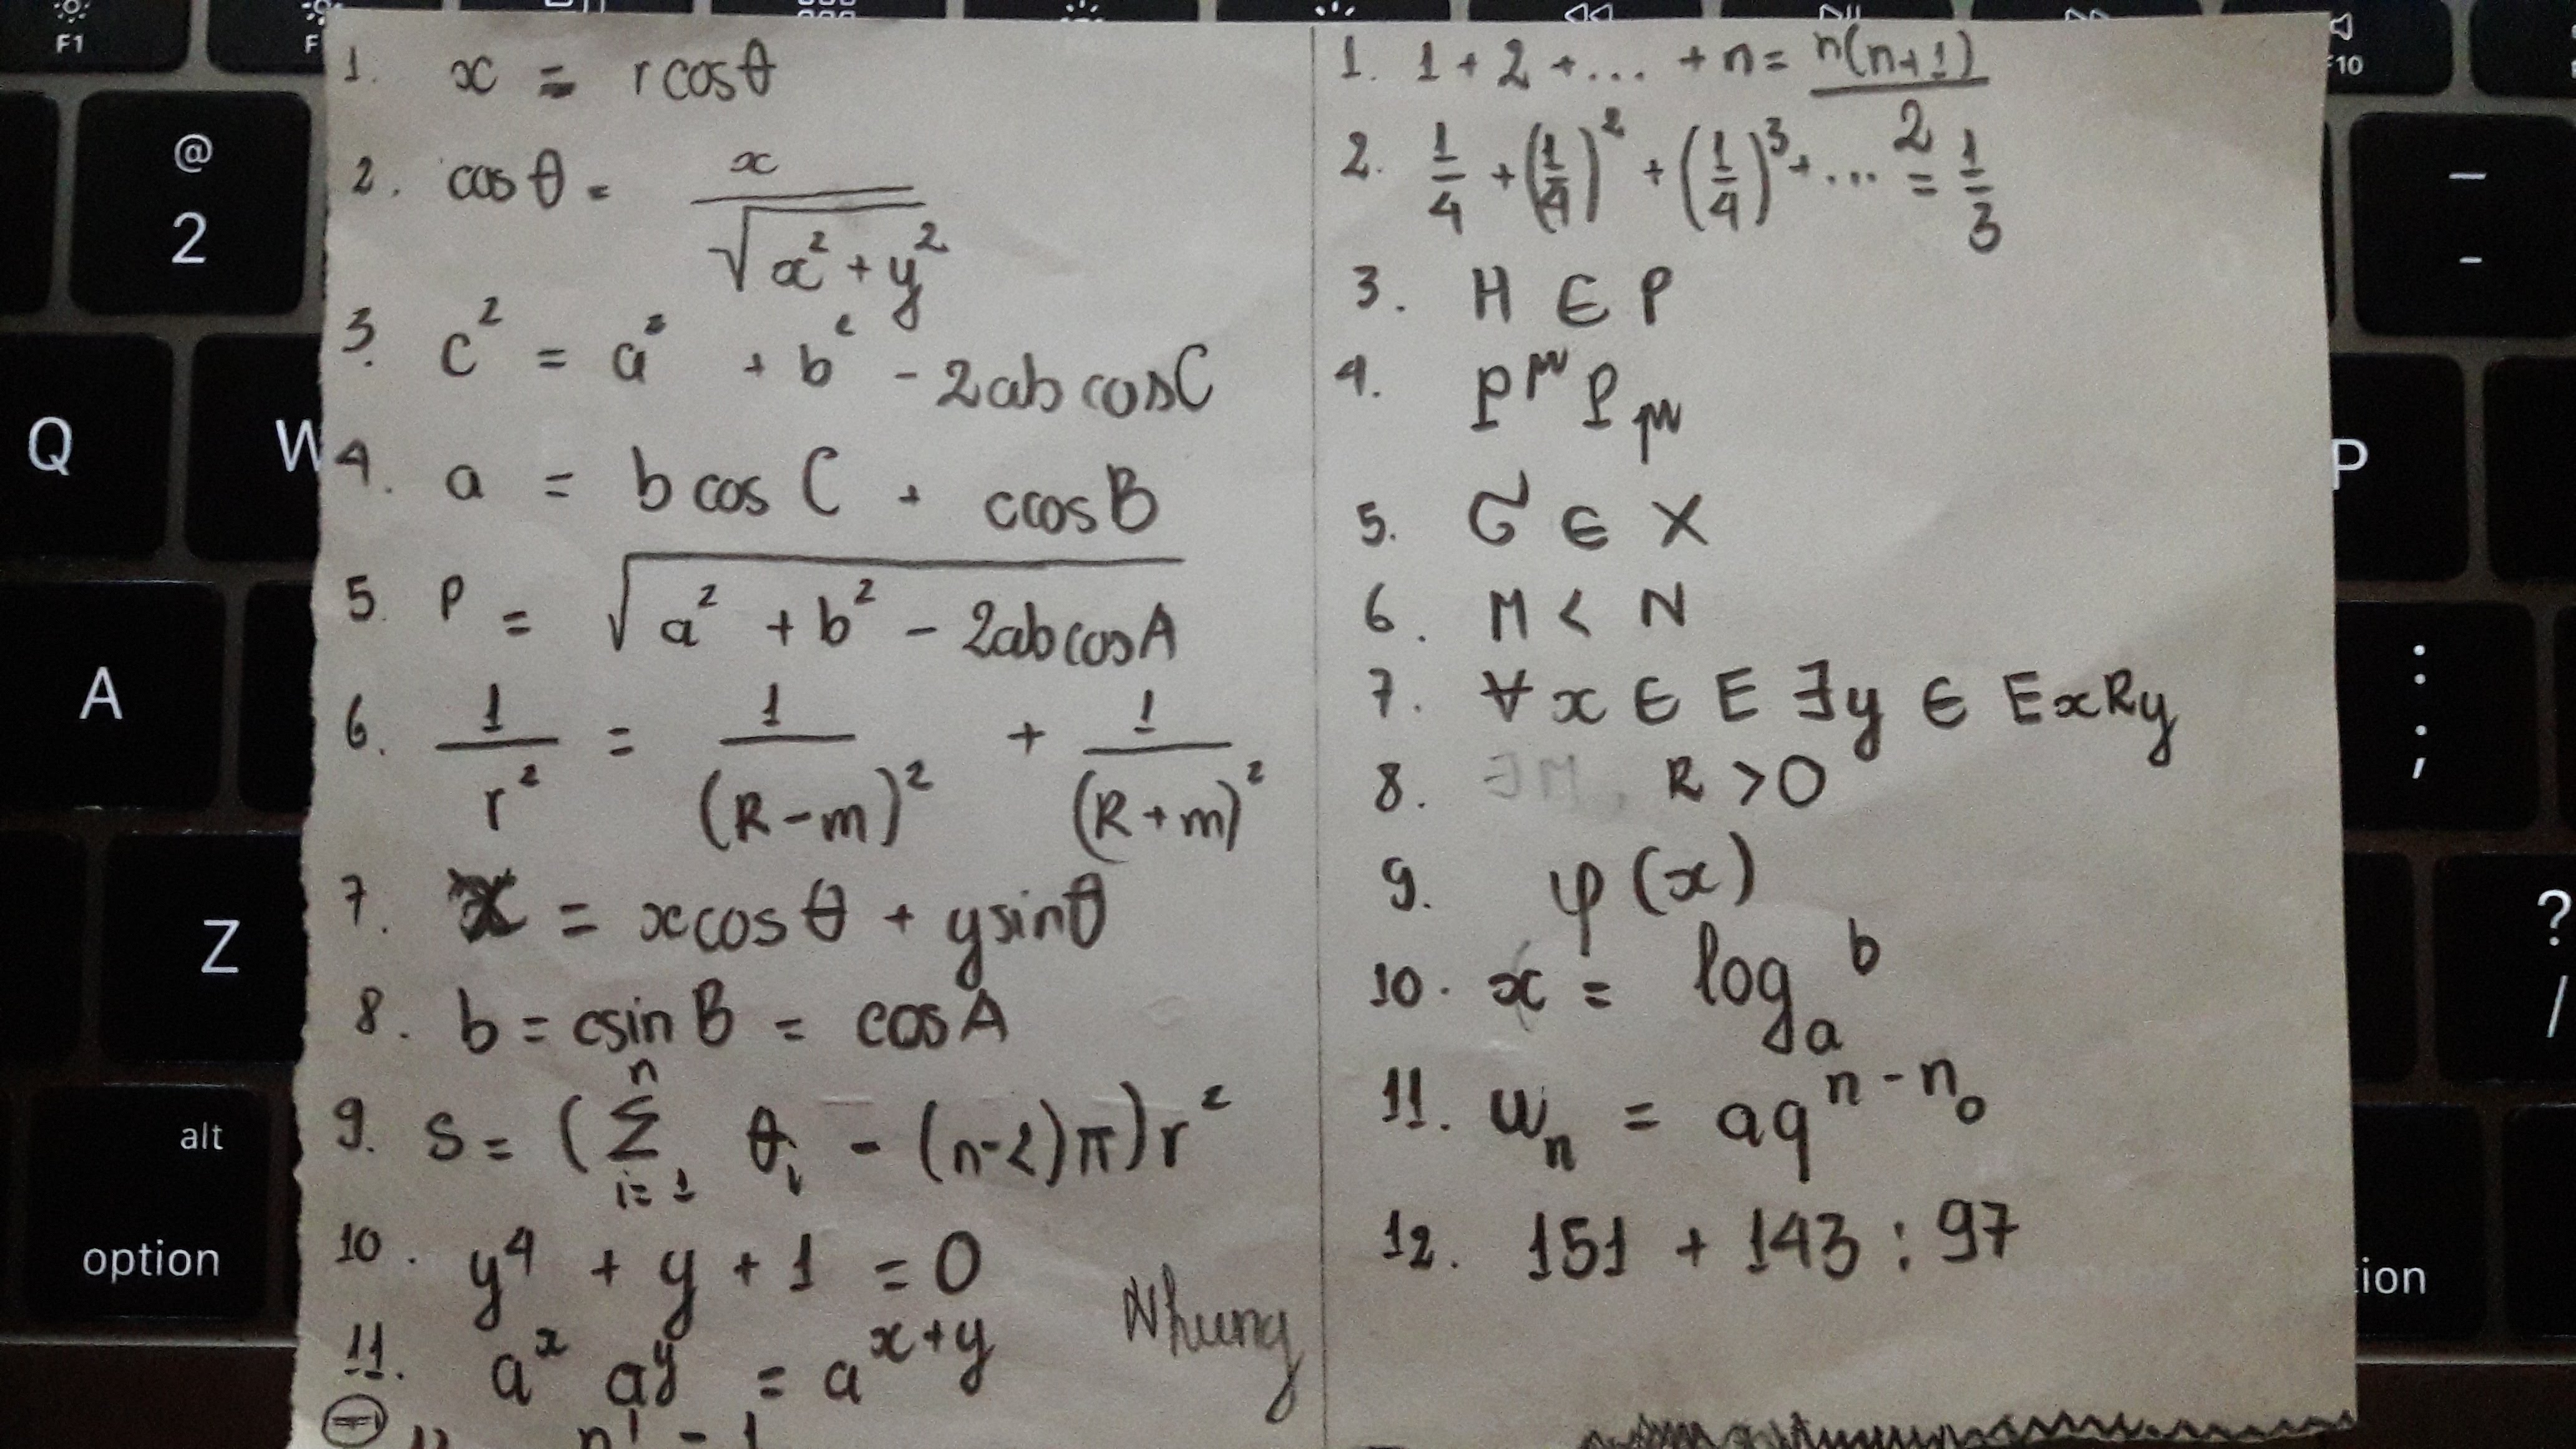 1. x = r cosθ
2. cos θ = x / √(x² + y²)
3. c² = a² + b² - 2ab cos C
4. a = b cos C + c cos B
5. P = √(a² + b² - 2ab cos A)
6. 1/r² = 1/(R-m)² + 1/(R+m)²
7. x = x cos θ + y sin θ
8. b = c sin B = cos A
9. S = (∑ᵢ₌₁ⁿ θᵢ - (n-2)π) r²
10. y⁴ + y + 1 = 0
11. aˣ aʸ = aˣ⁺ʸ
Nhung
1. 1 + 2 + ... + n = n(n+1)/2
2. 1/4 + (1/4)² + (1/4)³ + ... = 1/3
3. H ∈ P
4. P^μ P_μ
5. σ ∈ X
6. M < N
7. ∀ x ∈ E ∃y ∈ E xRy
8. R > 0
9. φ(x)
10. x = logₐ b
11. uₙ = aq^(n-n₀)
12. 151 + 143 : 97
F1
F10
@
2
Q
W
A
Z
alt
option
P
:
;
?
/
_
-